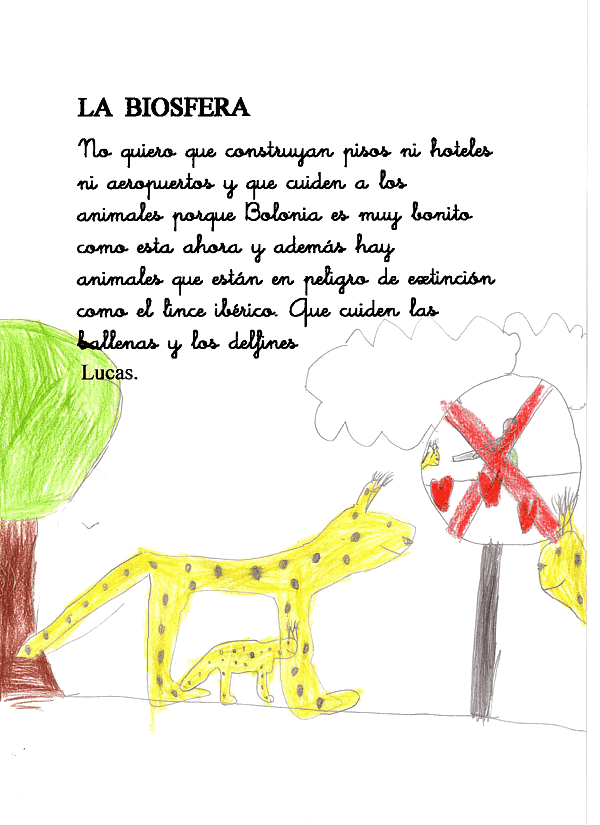 LA BIOSFERA
No quiero que construyan pisos ni hoteles
ni aeropuertos y que cuiden a los
animales porque Bolonia es muy bonito
como esta ahora y además hay
animales que están en peligro de extinción
como el lince ibérico. Que cuiden las
ballenas y los delfines
Lucas.